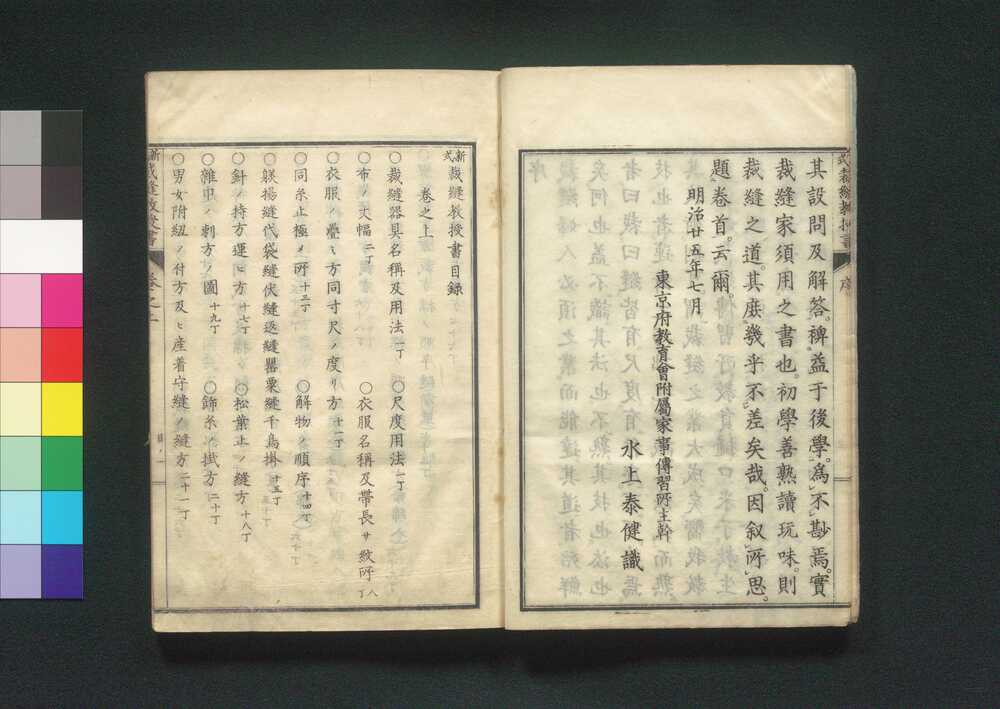 其設問及解答。裨益于後學。為不尠焉。實
裁縫家須用之書也。初學善熟讀玩味。則
裁縫之道。其庶幾乎不差矣哉。因叙所思。
題卷首。云爾。
明治廿五年七月
東京府教育會附屬家事傳習所主幹
水上泰健識
新式裁縫教授書目錄
卷之上
○裁縫器具名稱及用法 一丁
○尺度用法 一丁
○布ノ丈幅 二丁
○衣服名稱及帶長サ紋所 八丁
○衣服ノ疊ミ方同寸尺ノ度リ方 十一丁
○同糸止極メ所 十三丁
○解物ノ順序 十四丁
○躾揚縫代袋縫伏縫返縫罌粟縫千鳥掛 十五丁
○針ノ持方運ヒ方 十七丁
○松葉止ノ縫方 十八丁
○雜巾ノ刺方ノ圖 十九丁
○飾糸ノ掛方 二十丁
○男女附紐ノ付方及ヒ産着守縫ノ縫方 二十一丁